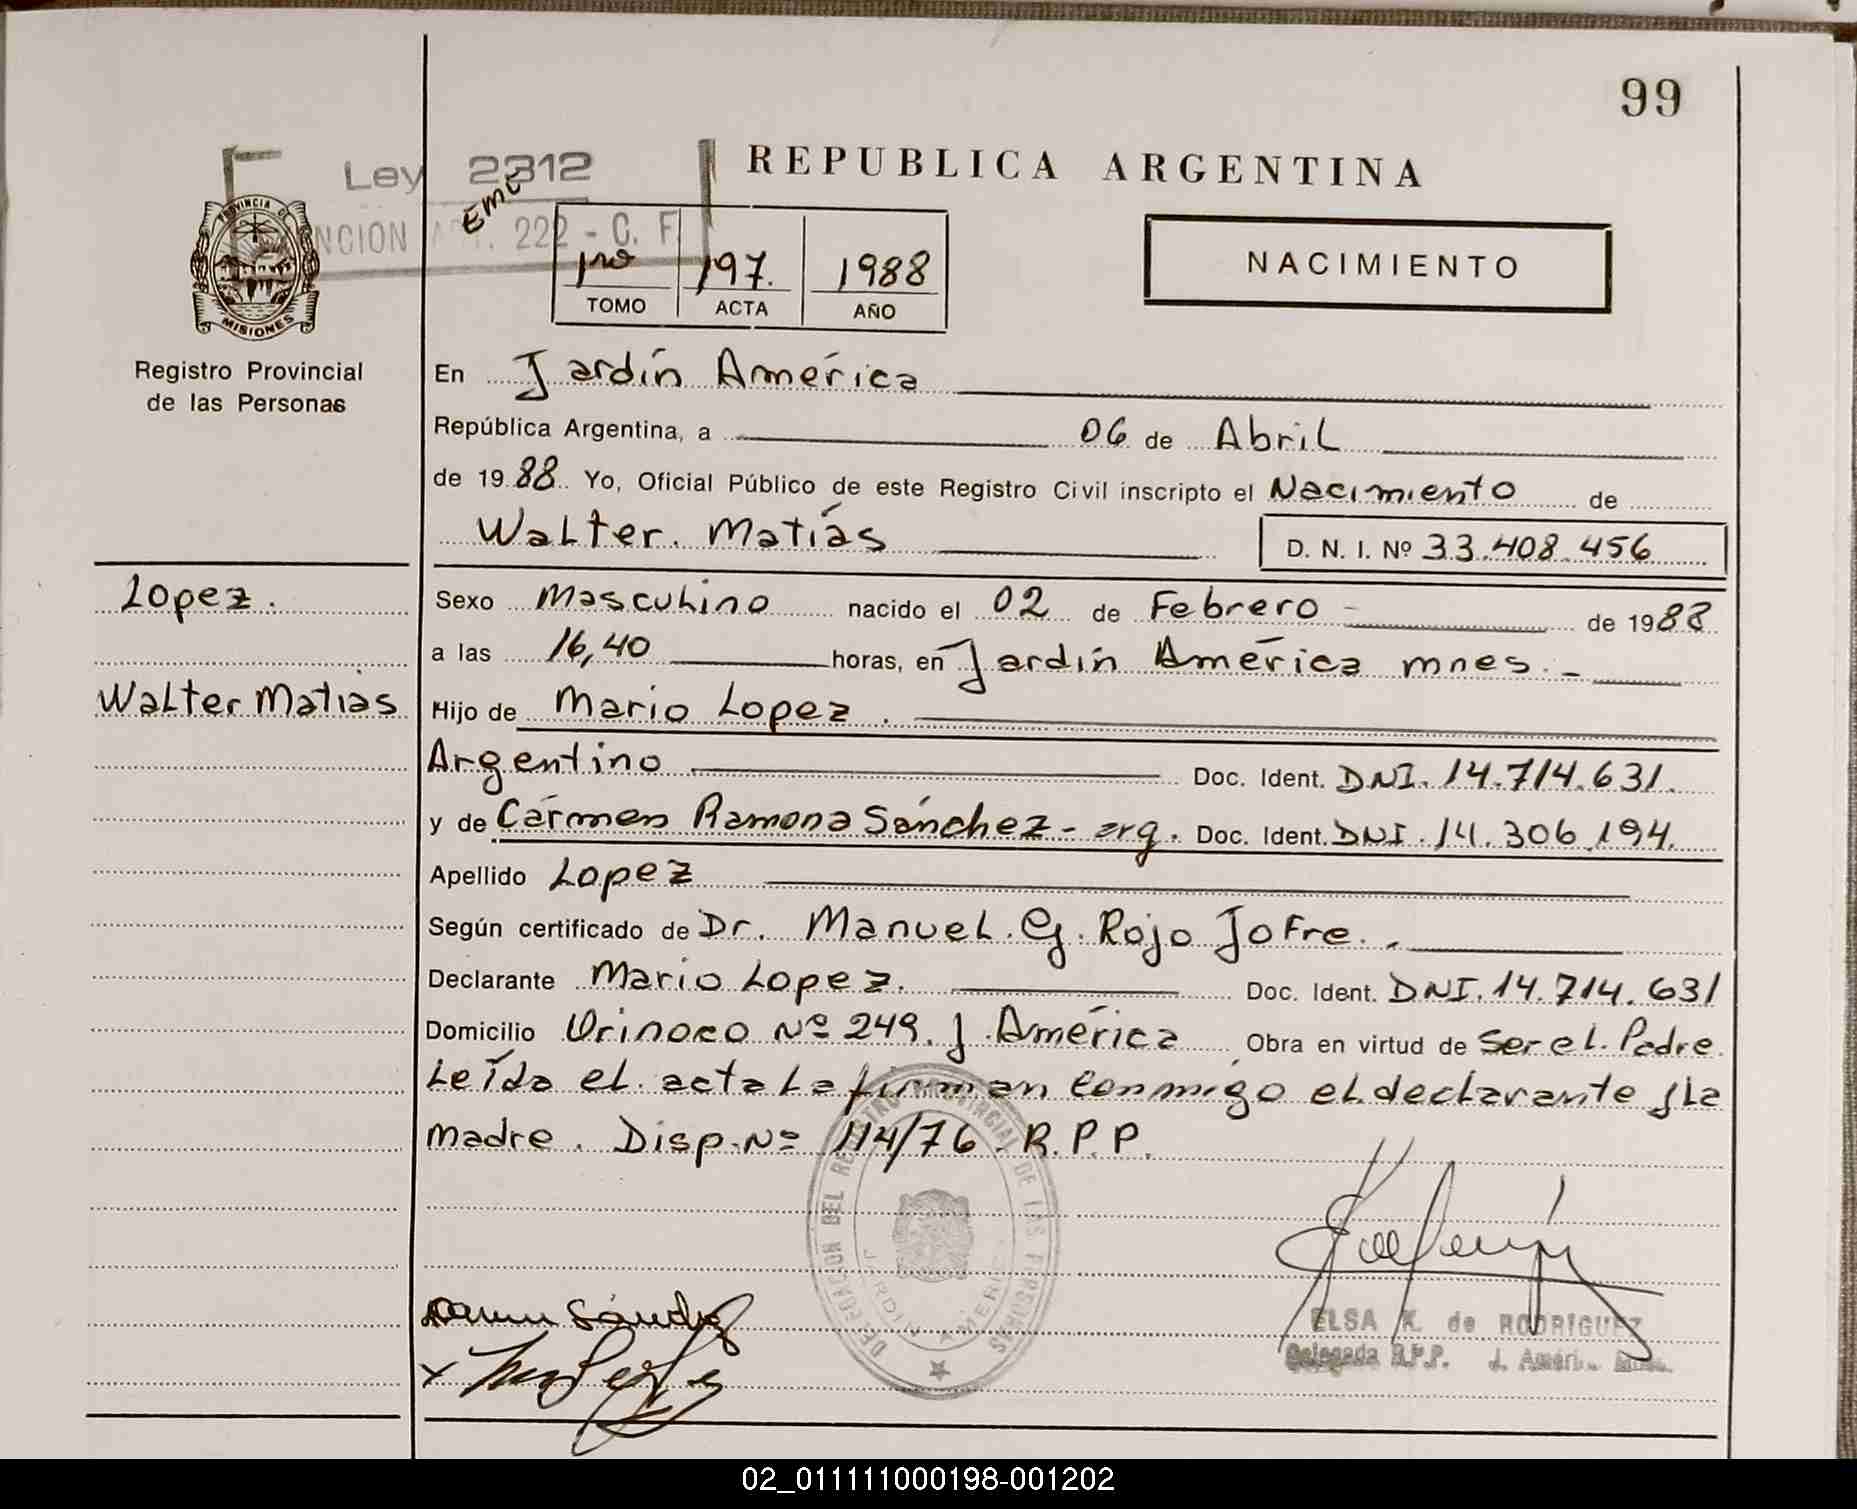 99
Ley 2312
NCION ART. 222 - C. F
REPUBLICA ARGENTINA
PROVINCIA DE
MISIONES
1ro 197. 1988
TOMO ACTA AÑO
NACIMIENTO
Registro Provincial
de las Personas
En Jardín América
República Argentina, a 06 de Abril
de 1988. Yo, Oficial Público de este Registro Civil inscripto el Nacimiento de
Walter. Matías D. N. I. Nº 33.408.456
Lopez.
Walter Matias
Sexo Masculino nacido el 02 de Febrero de 1988
a las 16,40 horas, en Jardín América mnes.
Hijo de Mario Lopez.
Argentino Doc. Ident. DNI. 14.714.631.
y de Cármen Ramona Sánchez - arg. Doc. Ident. DNI. 14.306.194.
Apellido Lopez
Según certificado de Dr. Manuel. G. Rojo Jofre.
Declarante Mario Lopez. Doc. Ident. DNI. 14.714.631
Domicilio Orinoco Nº 249. J. América Obra en virtud de Ser el. Padre.
Leída el acta La firman conmigo el declarante y La
madre. Disp. Nº 114/76 R.P.P.
DELEGACION DEL REGISTRO PROVINCIAL DE LAS PERSONAS
JARDIN AMERICA
Sánchez
ELSA K. de RODRIGUEZ
Delegada R.P.P. J. Améri
02_011111000198-001202